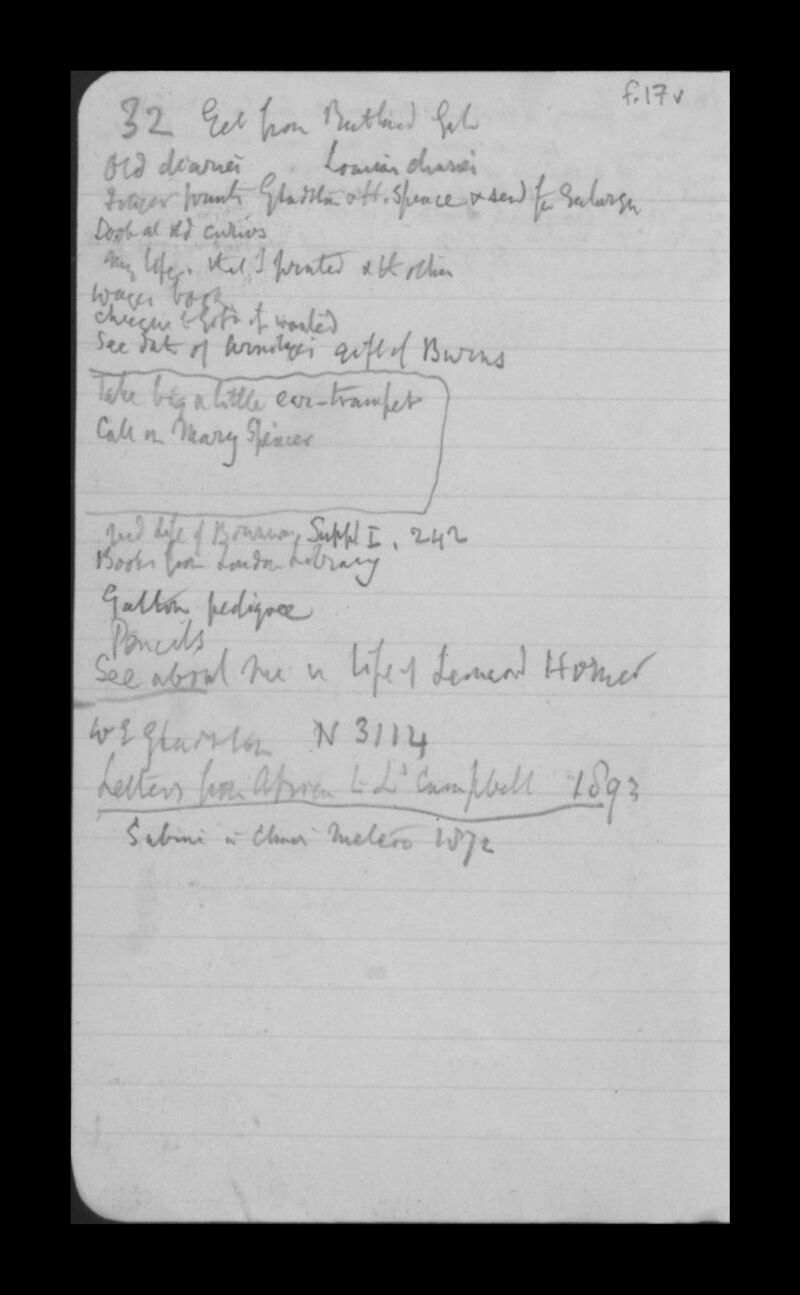 f.17v
32 Get from Rutland Gate
Old diaries Louisa's diaries
Finger prints Gladstone & H. Spencer & send for Enlarg
Look at old curios
My life, that I printed & the other
wages book
cheque
See date of gift of Burns
Take big & little ear-trumpet
Call on Mary Spencer
read Life of Suppl I, 242
Books from London Library
Galton pedigree
Pencils
See about me in life of Leonard Horner
W E Gladstone N 3114
Letters from Africa to Campbell 1893
Sabine in Meteo 1872